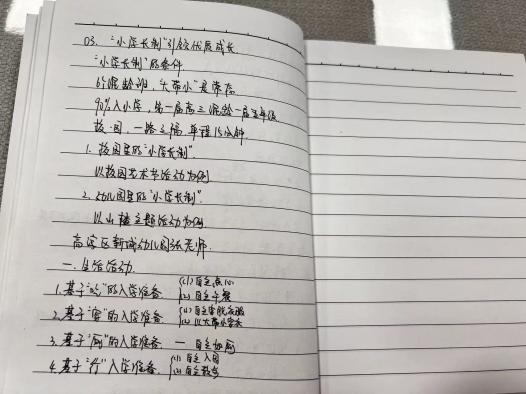 03. "小学长制"引领优质成长
"小学长制"的条件
6个混龄班,"大带小"是常态
90%入小学,第一届高三混龄一届五年级
校·园,一路之隔,单程15分钟
1. 校园里的"小学长制"
以校园艺术节活动为例
2. 幼儿园里的"小学长制"
以山楂主题活动为例
高淳区新城幼儿园 老师
一. 生活活动
1.基于"吃"的入学准备 (1)自主点心 (2)自主午餐
2.基于"睡"的入学准备 (1)自主穿脱衣服 (2)以大带小
3.基于"厕"的入学准备 — 自主如厕
4.基于"行"入学准备 (1)自主入园 (2)自主散步